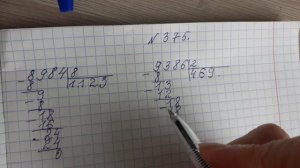 N 375.
8984 8 9386 2
8 1123 8 469
9 13
8 12
18 18
16 18
24
24
0